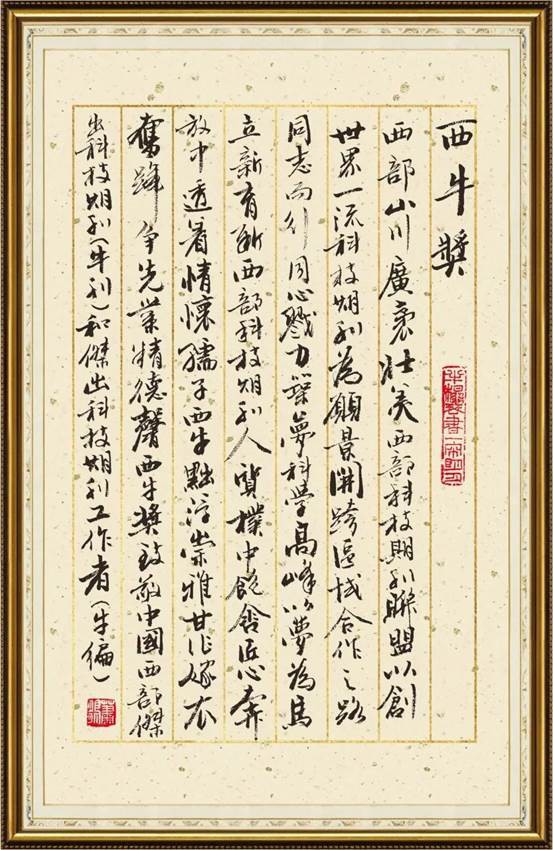 西牛獎
西部山川廣袤壯美西部科技期刊聯盟以創
世界一流科技期刊為願景開跨區域合作之路
同志而行同心戮力築夢科學高峰以夢為馬
立新有西部科技期刊人質樸中飽含匠心奔
放中透着情懷孺子西牛黜浮崇雅甘作嫁衣
奮蹄爭先業精德馨西牛獎致敬中國西部傑
出科技期刊(牛刊)和傑出科技期刊工作者(牛編)